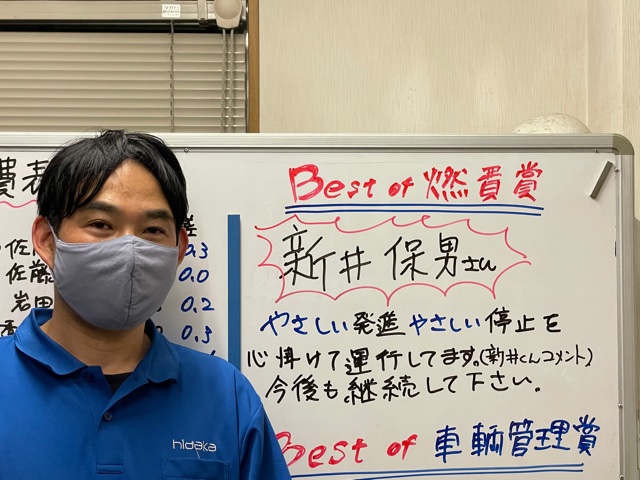 Best of 燃費賞
新井 保男さん
やさしい発進やさしい停止を
心掛けて運行してます。(新井くんコメント)
今後も継続して下さい。
Best of 車輌管理賞
費表
佐 0.3
佐藤 0.0
岩田 0.2
0.3
hidaka